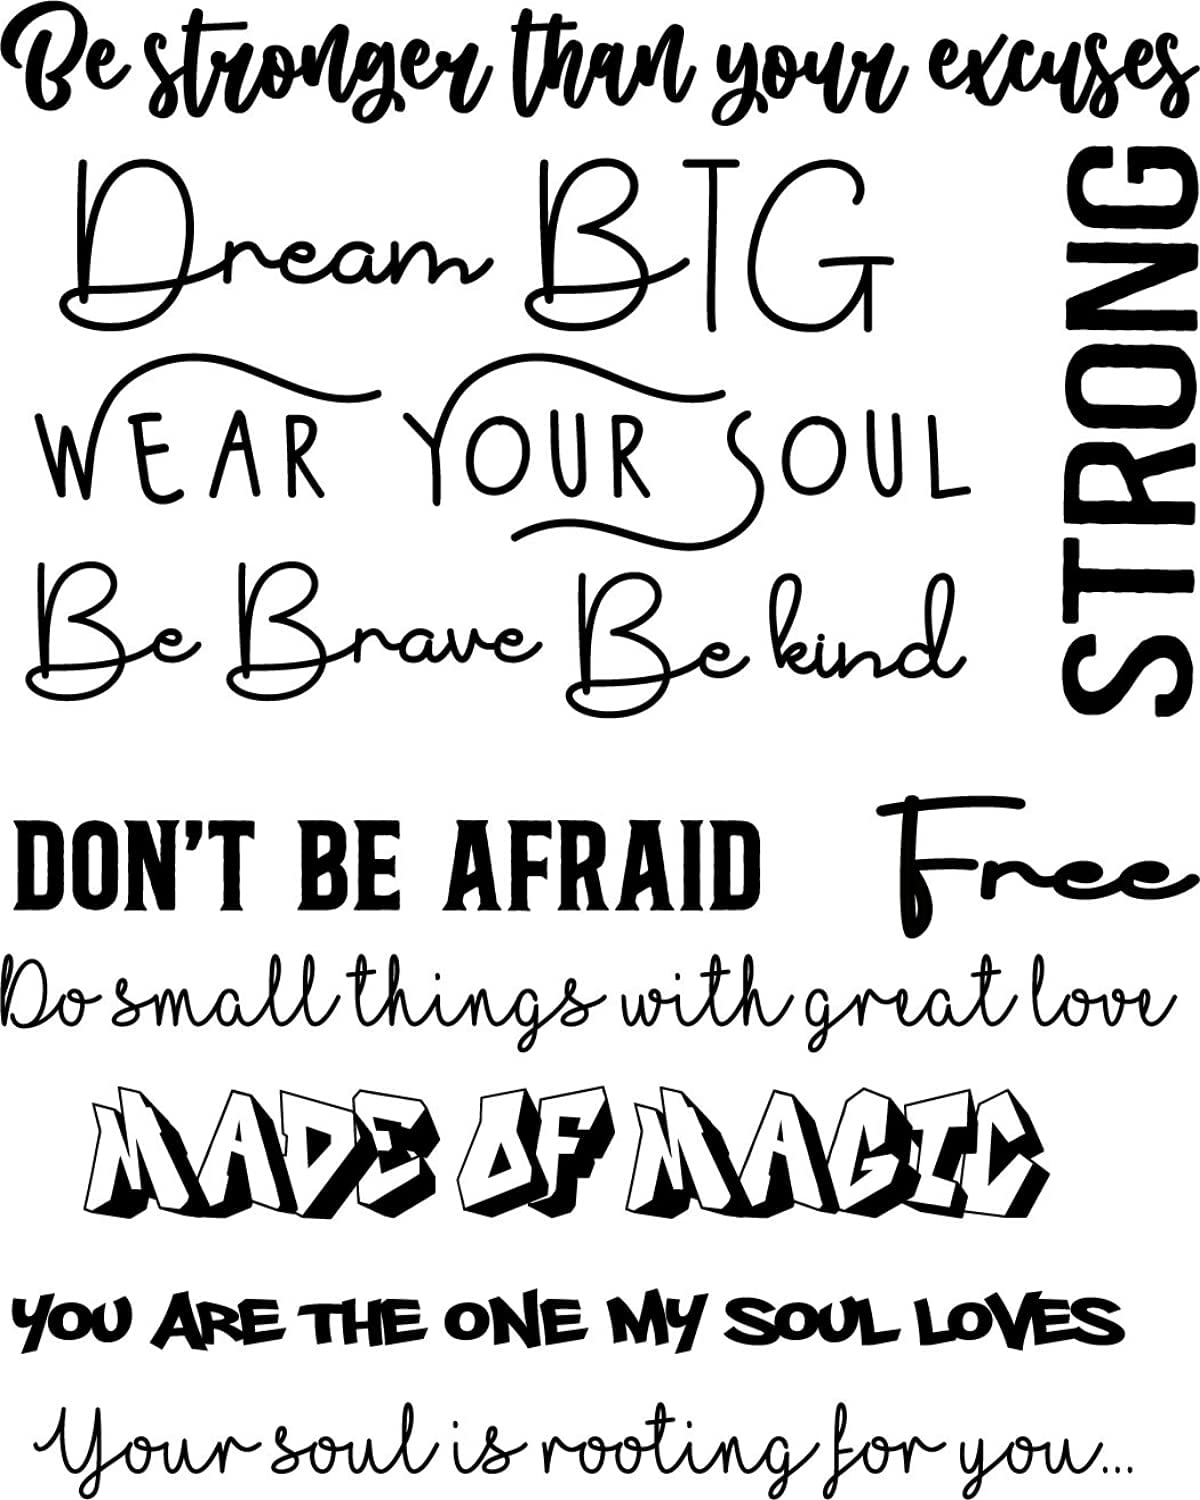 Be stronger than your excuses
Dream BIG
STRONG
WEAR YOUR SOUL
Be Brave Be kind
DON'T BE AFRAID
Free
Do small things with great love
MADE OF MAGIC
YOU ARE THE ONE MY SOUL LOVES
Your soul is rooting for you...